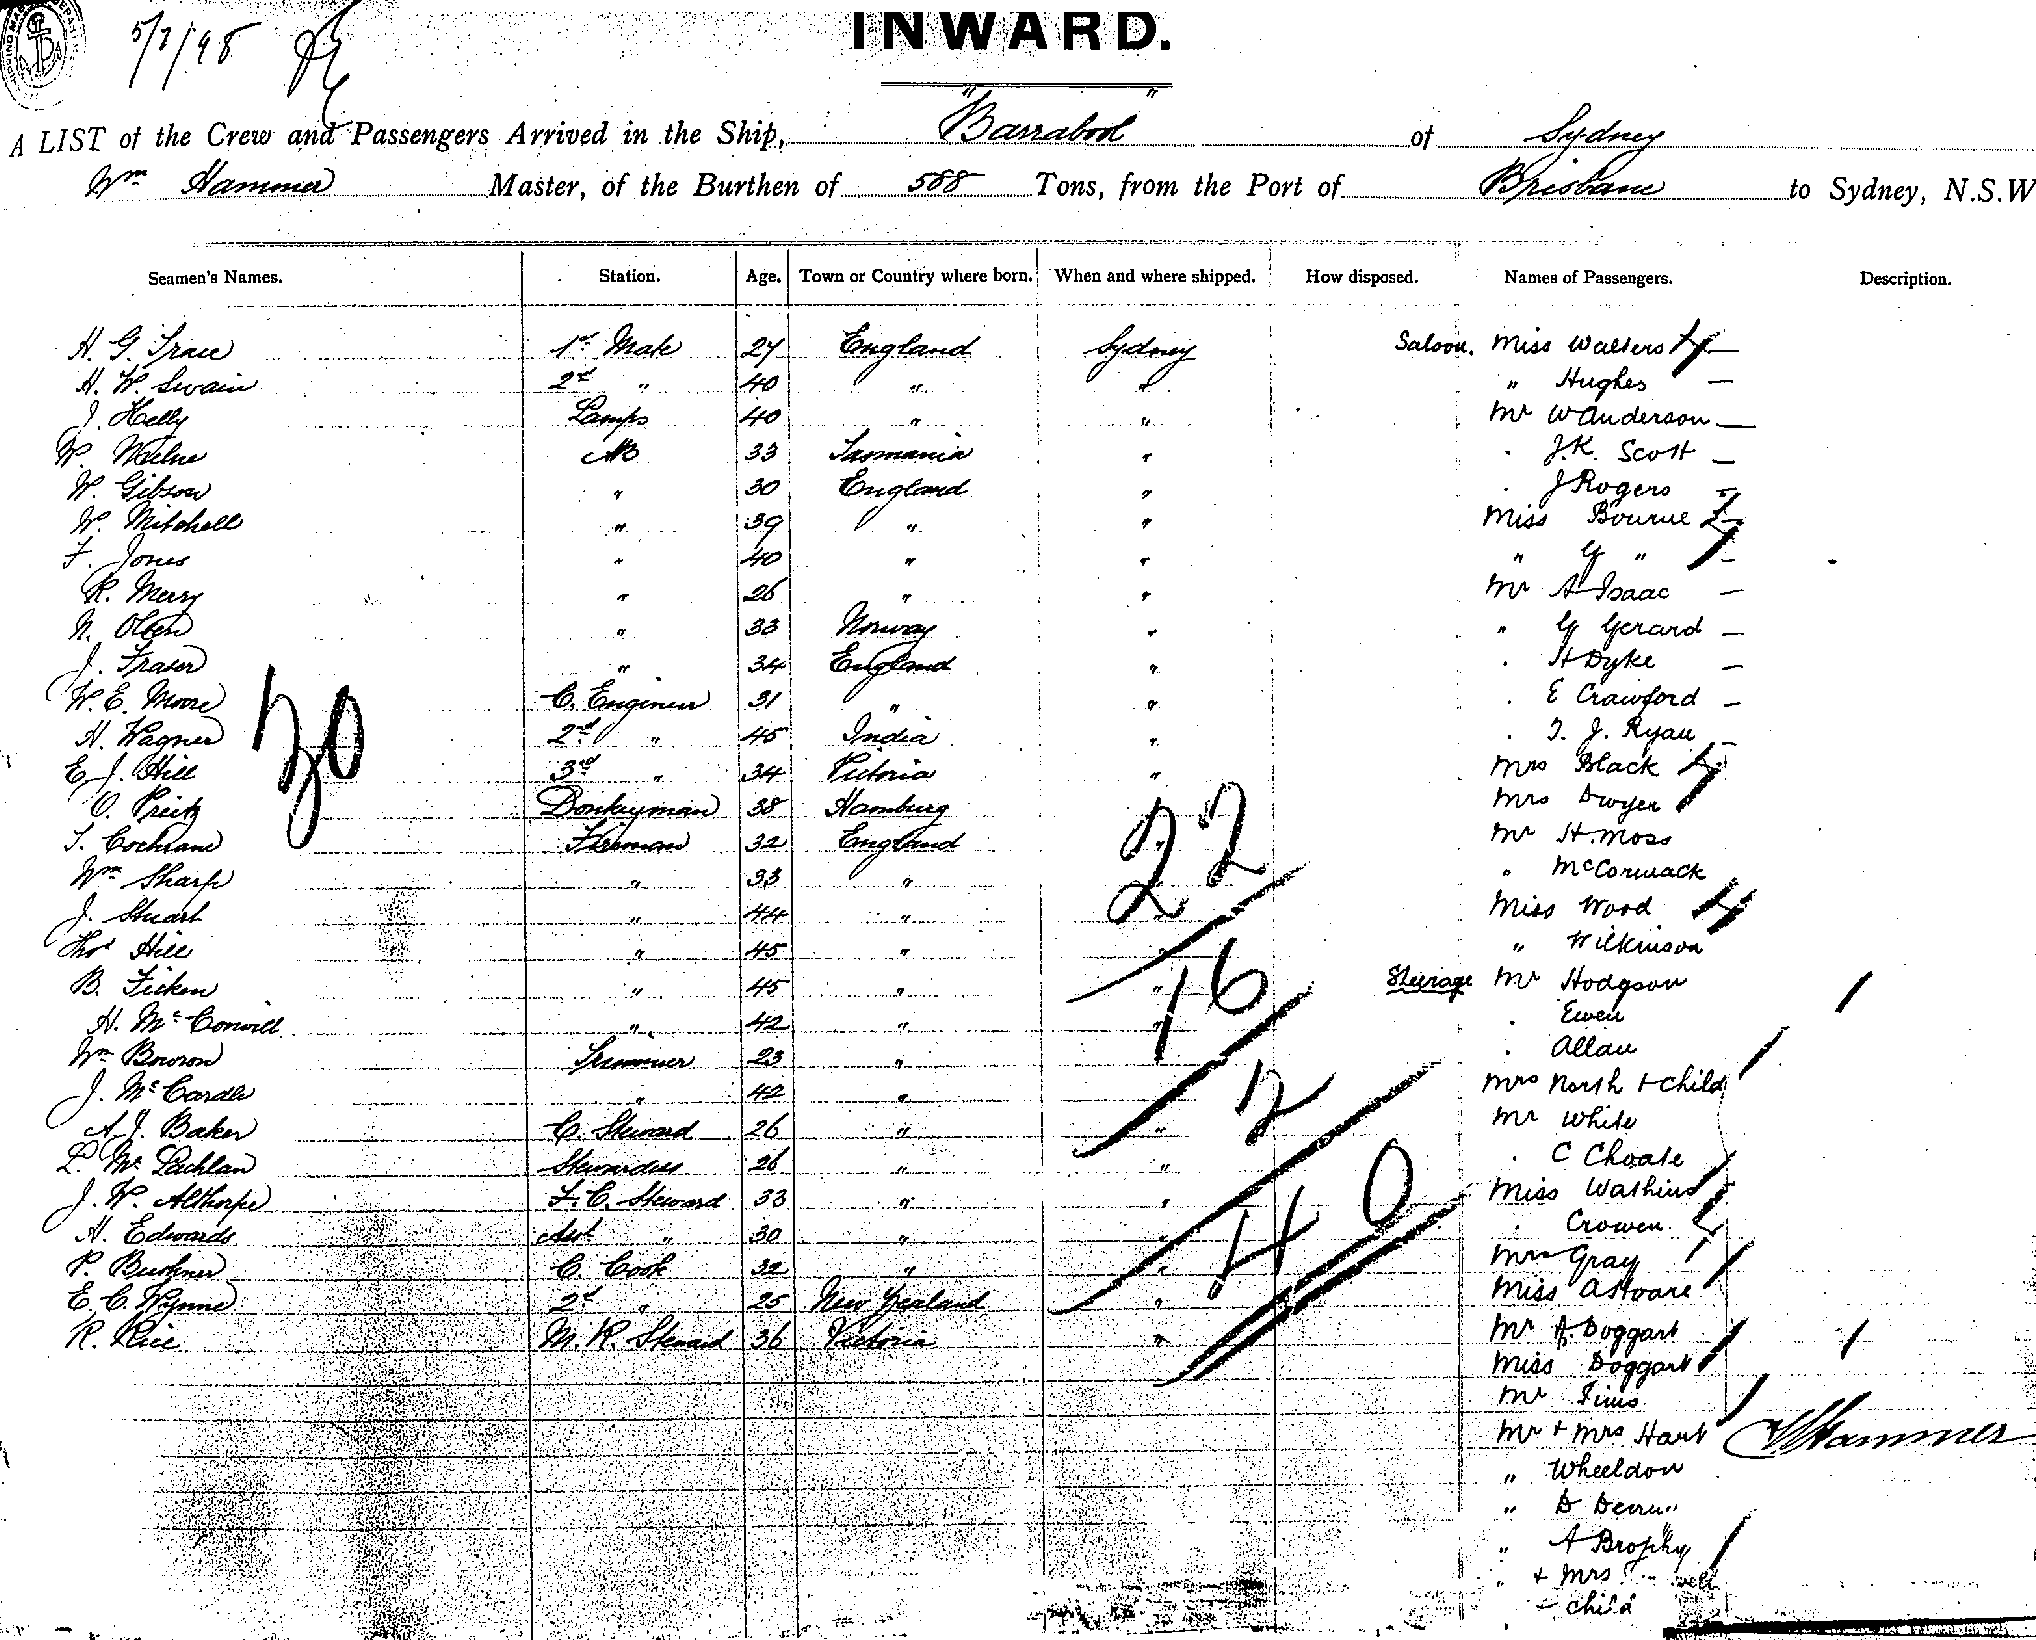 5/7/98
INWARD.
A LIST of the Crew and Passengers Arrived in the Ship, "Barrabool" of Sydney
Wm Hammer Master, of the Burthen of 588 Tons, from the Port of Brisbane to Sydney, N.S.W
Seamen's Names. Station. Age. Town or Country where born. When and where shipped. How disposed. Names of Passengers. Description.
H. G. Trace 1st Mate 27 England Sydney Saloon. Miss Walters 4 —
H. W. Swain 2nd " 40 " " " Hughes —
J. Kelly Lamps 40 " " Mr W Anderson —
W. Milne AB 33 Tasmania " . J.K. Scott —
W. Gibson " 30 England " . J Rogers —
W. Mitchell " 39 " " Miss Bourne —
F. Jones " 40 " " " G " —
R. Merry " 26 " " Mr A Isaac —
N. Olsen " 33 Norway " " G Gerard —
J. Fraser " 34 England " . H Dyke —
W. E. Moore C. Engineer 31 " " . E Crawford —
H. Wagner 2nd " 45 India " . T. J. Ryan —
E. J. Hill 3rd " 34 Victoria " Mrs Black
O. Preitz Donkeyman 38 Hamburg Mrs Dwyer
T. Cochrane Fireman 32 England " Mr H. Moss
Wm Sharp " 33 " " McCormack
J. Stuart " 44 " " Miss Wood
Thos Hill " 45 " " " Wilkinson
B. Ficken " 45 " " Steerage Mr Hodgson
H. McConvill " 42 " " . Ewen
Wm Bowron Trimmer 23 " . Allan
J. McCardle " 42 " Mrs North + Child
A. J. Baker C. Steward 26 " " Mr White
L. McLachlan Stewardess 26 " " . C Choate
J. W. Althorpe F. C. Steward 33 " " Miss Watkins
H. Edwards Asst " 30 " " . Crowen
P. Bushner C. Cook 32 " " Mrs Gray
E. C. Wynne 2nd " 25 New Zealand " Miss
R. Rice M. R. Steward 36 Victoria " Mr A. Doggart
Miss Doggart
Mr Tims
Mr + Mrs Hart
" Wheeldon
" D
" A Brophy
" + Mrs
+ child
30
22
16
2
40
Hammer